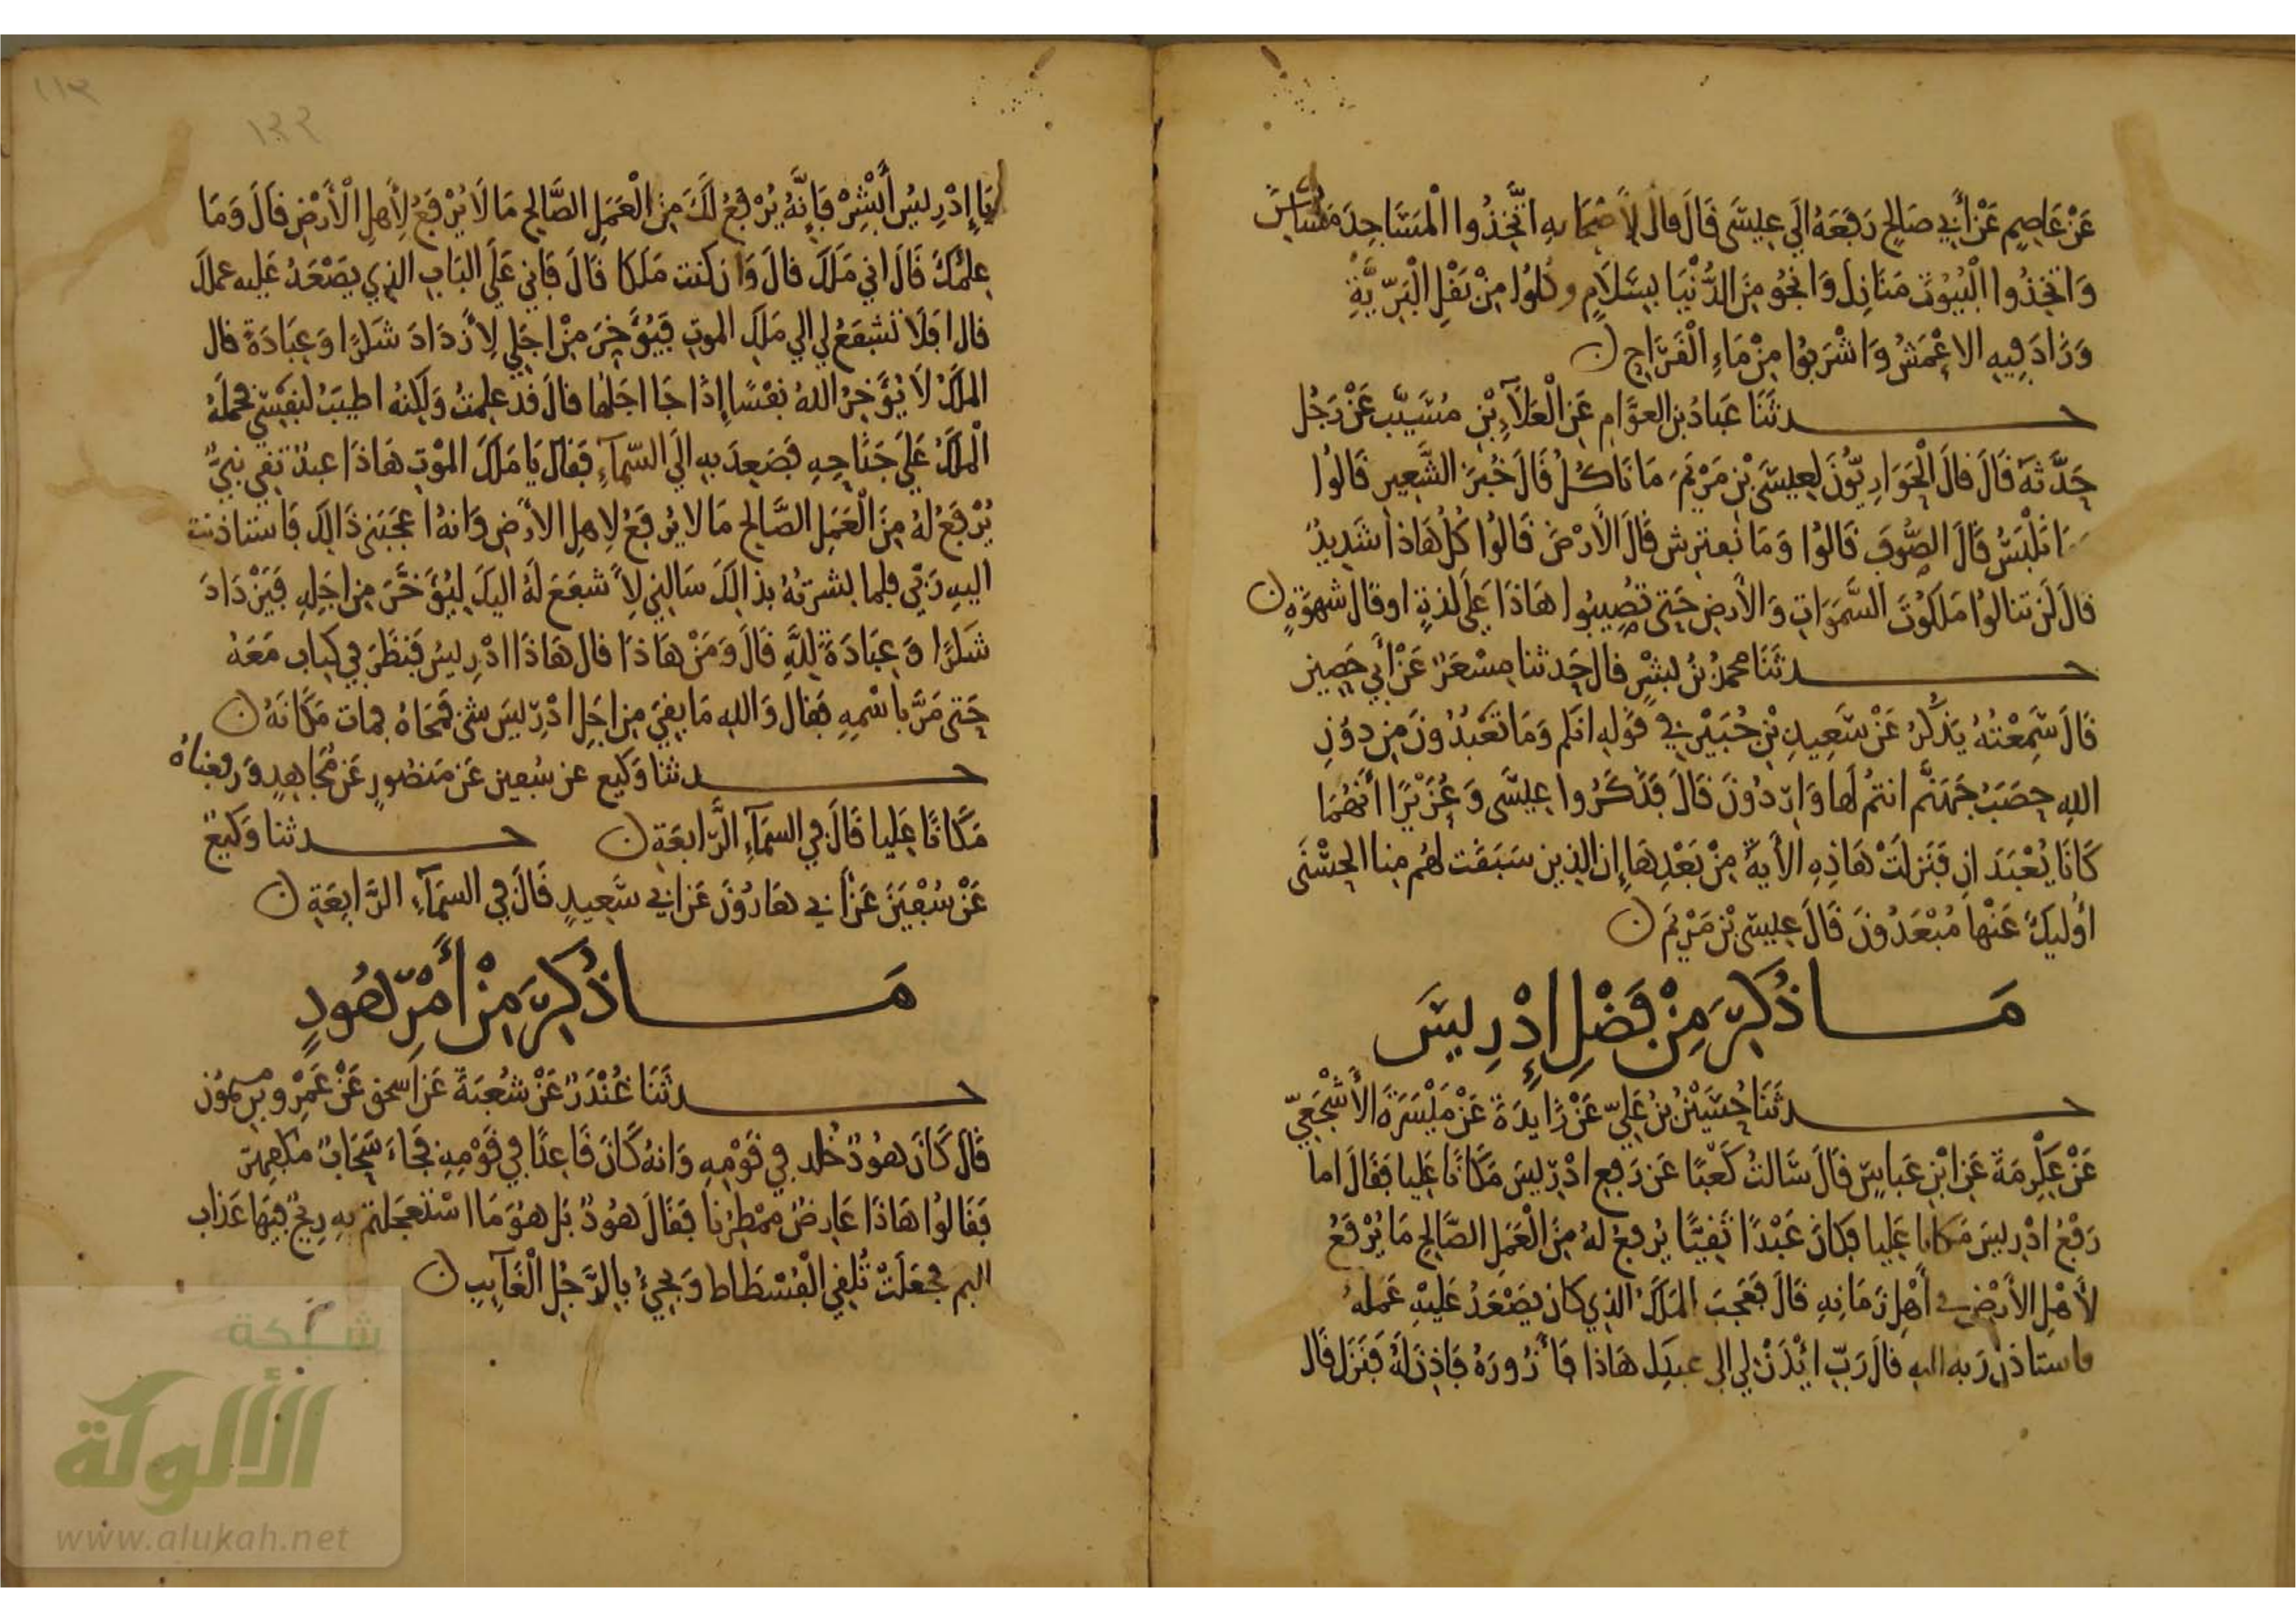 عَنْ عَاصِمٍ عَنْ أَبِي صَالِحٍ رَفَعَهُ إِلَي عِيسَى قَالَ قال لأصْحَابِهِ اتَّخِذُوا الْمَسَاجِدَ مَسَاكِنَ
وَاتَّخِذُوا الْبُيُوتَ مَنَازِلَ وَانْجُو مِنَ الدُّنْيَا بِسَلَامٍ وكُلُوا مِنْ بَقْلِ الْبَرِّيَّةِ
وَزَادَ فِيهِ الاعْمَشُ وَاشْرَبُوا مِنْ مَاءِ الْقَرَاحِ ن
حدثَنَا عَبَادُ بن العوَّامِ عَنِ الْعَلَآءِ بْنِ مُسَيَّب عَنْ رَجُل
حَدَّثَهُ قَالَ قالَ الْحَوَارِيُّونَ لِعِيسَى بْنِ مَرْيَمَ مَا نَاكُلُ قَالَ خُبْزَ الشَّعِيرِ قَالُوا
وَمَا نَلْبَسُ قَالَ الصُّوفَ قَالُوا وَمَا نَفترِش قَالَ الأَرْضَ قَالُوا كُلُّ هَاذا شَدِيدٌ
قالَ لَنْ تنالُوا مَلَكُوتَ السَّمَوَاتِ وَالأَرضِ حَتى تُصِيبُوا هَاذَا عَلَى لذةٍ اوقال شهوَةٍ ن
حدثَنَا محمدُ بْنُ بِشْرٍ قال حَدثنا مِسْعَرٌ عَنْ أَبِي حَصِينٍ
قَالَ سَمِعْتُهُ يَذْكُرُ عَنْ سَعِيدِ بْنِ جُبَيْرٍ في قَولِهِ انكم وَمَا تَعْبُدُونَ مِن دوُنِ
اللهِ حَصَبُ جَهَنَّم انتُمْ لَها وَارِدُونَ قَالَ فَذَكَرُوا عِيسَى وَعُزَيْرًا أَنَّهُمَا
كَانَا يُعْبَدَانِ فَنَزلَتْ هَاذِهِ الأيةُ مِنْ بَعْدِهَا إن الذِين سَبَقَت لهُم مِنا الحُسْنَى
أُوليكَ عَنْهَا مُبْعَدُونَ قَالَ عِيسَى بْن مَرْيَمَ ن
مَا ذُكِرَ مِنْ فَضْلِ إِدْرِيسَ
حدثَنَا حُسَيْنُ بْنُ عَلِيّ عَنْ زَايِدَةَ عَنْ مَيْسَرَةَ الأَشْجَعِيّ
عَنْ عِكْرِمَةَ عَنِ ابْنِ عَباسٍ قَالَ سَالتُ كَعْبًا عَن رَفعِ ادْرِيسَ مَكَانًا عَلِيا فَقَالَ اما
رَفْعُ ادْرِيسَ مَكانا عَلِيا فكَانَ عَبْدًا تَقِيًّا يُرفعُ لهُ مِنَ الْعَمَلِ الصَّالِحِ مَا يُرْفَعُ
لأَهْلِ الأَرْضِ في أَهْلِ زَمَانِهِ قَالَ فَعَجِبَ المَلَكُ الذِي كان يَصْعَدُ عَلَيْهِ عَمَلُهُ
فاستاذن رَبه اليه قالَ رَبّ ائْذَنْ لي الى عبدك هَاذا فَأَزُورَهُ فَاذِنَ لَهُ فَنَزَل قَال
يَا إِدْرِيسُ أَبْشِرْ فَإِنَّهُ يُرْفَعُ لَكَ مِنَ الْعَمَلِ الصَّالِحِ مَا لَا يُرْفَعُ لِأَهلِ الْأَرْضِ قَالَ وَمَا
عِلمُكَ قَالَ اني مَلَكٌ قالَ وَان كنت مَلَكا قَالَ فَاني عَلَى البَابِ الذِي يصْعَدُ عَلَيه عملك
قال افَلَا تشفعُ لي الى مَلَكِ الموتِ فيُؤَخِرَ مِنْ اجَلِي لِأَزْدَادَ شكرًا وَعِبَادَةً قال
المَلَكُ لَا يُؤَخِرُ اللهُ نفْسًا إِذَا جَا اجَلُهَا قالَ قَد علِمتُ وَلكِنهُ اطيَبُ لنفْسِي فحمَلَهُ
الْمَلَكُ عَلَى جَنَاحِهِ فصَعِدَ بِهِ إِلَى السّمآءِ فَقَال يَا مَلَكَ المَوْتِ هَاذَا عبدٌ تقِي نبِيٌّ
يُرْفَعُ لهُ مِنَ الْعَمَلِ الصَّالِحِ مَا لا يُرفَعُ لِاهلِ الأَرْضِ وَانهُ اعجَبَنِي ذَالِكَ فَاستاذنت
اليهِ رَبِّي فلما بشرتهُ بذالِكَ سَالنِي لِأَشفَعَ لَهُ اليكَ لِيُؤَخَّرَ مِن اجَلِهِ فَيَزْدَادَ
شكرًا وَعِبَادَةً لِلَّهِ قَالَ وَمَنْ هَاذَا قال هَاذَا ادْرِيسُ فَنظَرَ في كِتابٍ مَعَهُ
حَتى مَرَّ بِاسْمِهِ فَقال وَاللهِ مَا بقِيَ مِن اجَلِ ادْرِيسَ شئ فمَحَاهُ فمات مَكَانَهُ ن
حدثنا وَكِيع عن سُفين عَن مَنصُورٍ عَن مُجَاهِدٍ وَرفعناهُ
مَكَانًا عَلِيا قَالَ في السمَآءِ الرَّابعَةِ ن حدثنا وَكيعٌ
عَنْ سُفْيَنَ عَنْ أبي هَارُونَ عَن ابي سَعِيدٍ قَالَ في السمَآءِ الرَّابِعَةِ ن
مَا ذُكِرَ مِنْ أَمْرِ هُودٍ
حدثَنَا غُنْدَرٌ عَنْ شُعْبَةَ عَن اسحق عَنْ عَمْرِو بن ميمُونٍ
قَالَ كَانَ هُودٌ في قَوْمِهِ وَانهُ كَانَ قَاعِدًا في قَوْمِهِ فجَاءَ سَحَابٌ مكفهِرٌ
فَقَالُوا هَاذَا عَارِضٌ ممْطِرُنا فقَالَ هُودٌ بَل هُوَ مَا اسْتَعجَلتم بِهِ رِيحٌ فِيهَا عَذاب
اليم فجَعَلَتْ تُلقِي الْفُسْطَاط وَتجِيءُ بِالرَّجُلِ الْغَآيِبِ ن
شبكة
الألوكة
www.alukah.net